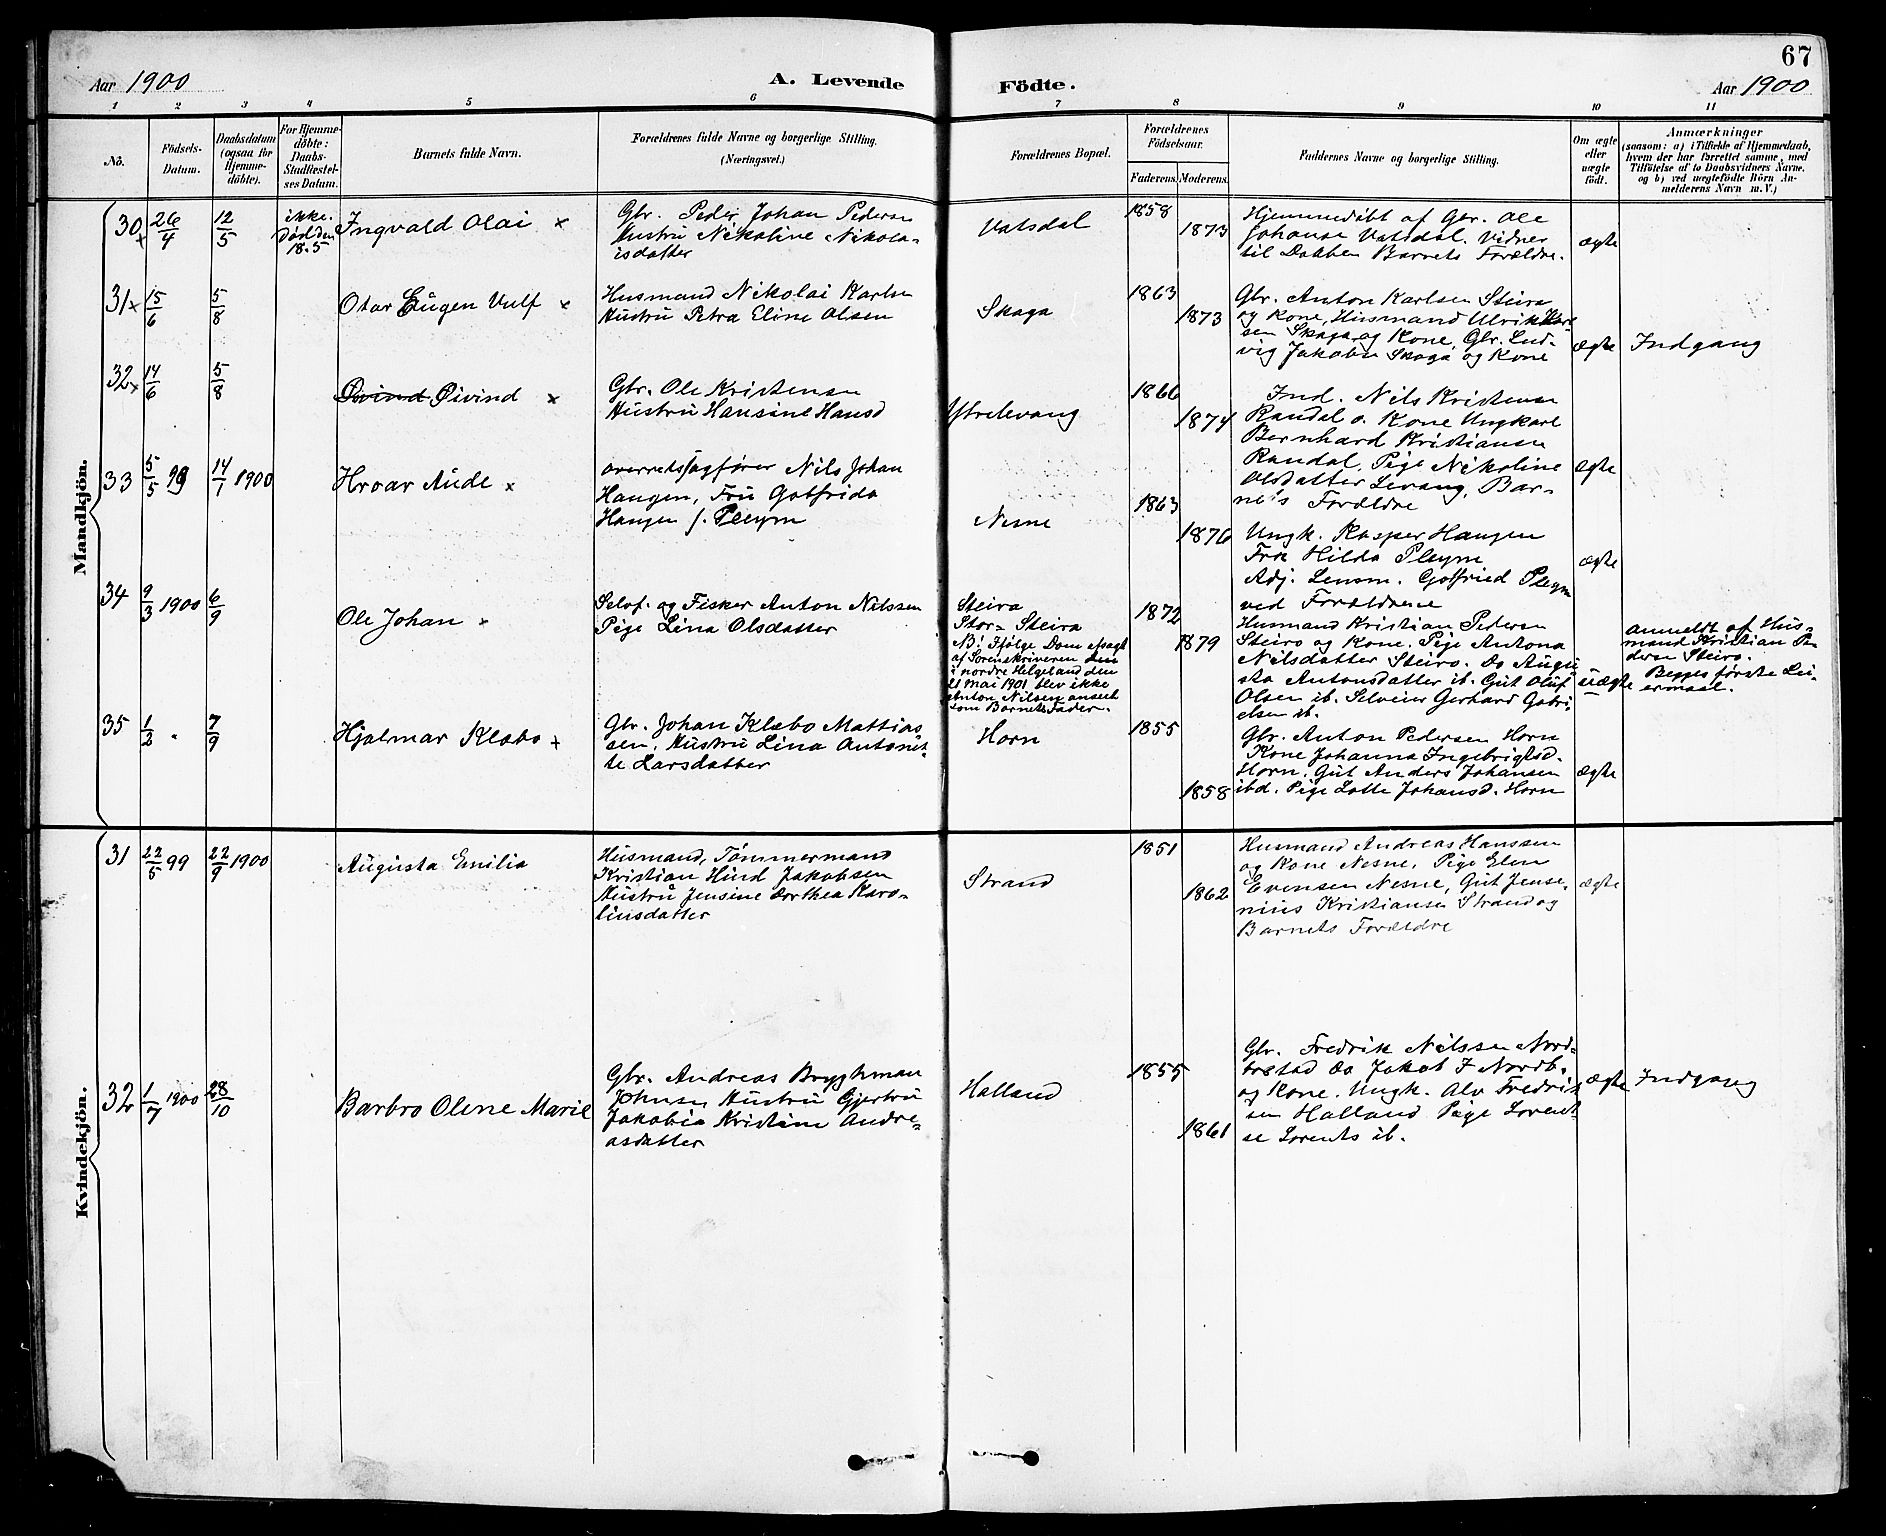 67
Aar 1900
A. Levende
Födte.
Aar 1900
1 2 3 4 5 6 7 8 9 10 11
No.
Födsels-
Datum.
Daabsdatum
(ogsaa for
Hjemme-
döbte).
For Hjemme-
döbte:
Daabs-
Stadfæstel-
ses Datum.
Barnets fulde Navn.
Forældrenes fulde Navne og borgerlige Stilling.
(Næringsvei.)
Forældrenes Bopæl.
Forældrenes
Födselsaar.
Faderens.
Moderens.
Faddernes Navne og borgerlige Stilling.
Om ægte
eller
uægte
födt.
Anmærkninger
(saasom: a) i Tilfælde af Hjemmedaab,
hvem der har forrettet samme, med
Tilföielse af to Daabsvidners Navne,
og b) ved uægtefödte Börn An-
melderens Navn m. V.)
Mandkjön.
30
26/4
12/5
ikke.
18.5
Ingvald Olai ×
Gbr. Peder Johan Pedersen
Hustru Nikoline Nikola-
isdatter
Vatsdal
1858
1873
Hjemmedøbt af Gbr. Ole
Johansen Vatsdal. Vidner
til Daaben Barnets Forældre.
ægte
31×
15/6
5/8
Otar Eugen Vulf ×
Husmand Nikolai Karlsen
Hustru Petra Eline Olsen
Skaga
1863
1873
Gbr. Anton Karlsen Steira
og Kone, Husmand Ulrik Karl-
sen Skaga og Kone, Gbr. Lud-
vig Jakobsen Skaga og Kone
ægte
Indgang
32×
14/6
5/8
Øivind Øivind ×
Gbr. Ole Kristensen
Hustru Hansine Hansd
Ytrelevang
1866
1874
Ind. Nils Kristensen
Randal o. Kone Ungkarl
Bernhard Kristiansen
Randal, Pige Nikoline
Olsdatter Levang, Bar-
nets Forældre
ægte
33
5/5 99
14/1 1900
Hroar Aude ×
overretssagfører Nils Johan
Haugen, Fru Gotfrida
Haugen f. Pleym
Nesne
1863
1876
Ungk. Kasper Haugen
Frk Hilda Pleym
Adj. Lensm. Gotfried Pleym
ved Forældrene
ægte
34
9/3 1900
6/9
Ole Johan ×
Selvf. og Fisker Anton Nilssen
Pige Lina Olsdatter
Steira
Stor-Steira
NB! Ifølge Dom afsagt
af Sorenskriveren
i nordre Helgeland den
21 mai 1901 blev ikke
Anton Nilsen anseet
som Barnets Fader.
1872
1879
Husmand Kristian Pedersen
Steiro og Kone. Pige Antona
Nilsdatter Steiro. Do Augu
sta Antonsdatter ib. Gut Oluf
Olsen ib. Selveier Gerhard Gabri-
elsen ib.
uægte
anmeldt af Hus-
mand Kristian Pe-
dersen Steiro.
Begges første Lei-
ermaal.
35
1/2 "
7/9
Hjalmar Klæbo ×
Gbr. Johan Klæbo Mattias
sen, Hustru Lina Antonet-
te Larsdatter
Horn
1855
1858
Gbr. Anton Pedersen Horn
Kone Johanna Ingebrigtsd.
Horn. Gut Anders Johansen
ibd. Pige Lotte Johansd. Horn
ægte
Kvindekjön.
31
22/5 99
22/9 1900
Augusta Emilia
Husmand, Tømmermand
Kristian Hind Jakobsen
Hustru Jensine Dorthea Karo-
linsdatter
Strand
1851
1862
Husmand Andreas Hanssen
og Kone Nesne, Pige Elen
Evensen Nesne, Gut Jense-
nius Kristiansen Strand og
Barnets Forældre
ægte
32
1/7 1900
28/10
Barbro Olene Marie
Gbr. Andreas Brygman
Johnsen Hustru Gjertru
Jakobia Kristine Andre-
asdatter
Halland
1855
1861
Gbr. Fredrik Nilssen Nord-
bostad Do Jakob J Nordb.
og Kone. Ungk. Alv Fredrik
sen Halland Pige Lorent-
se Lorents ib.
ægte
Indgang